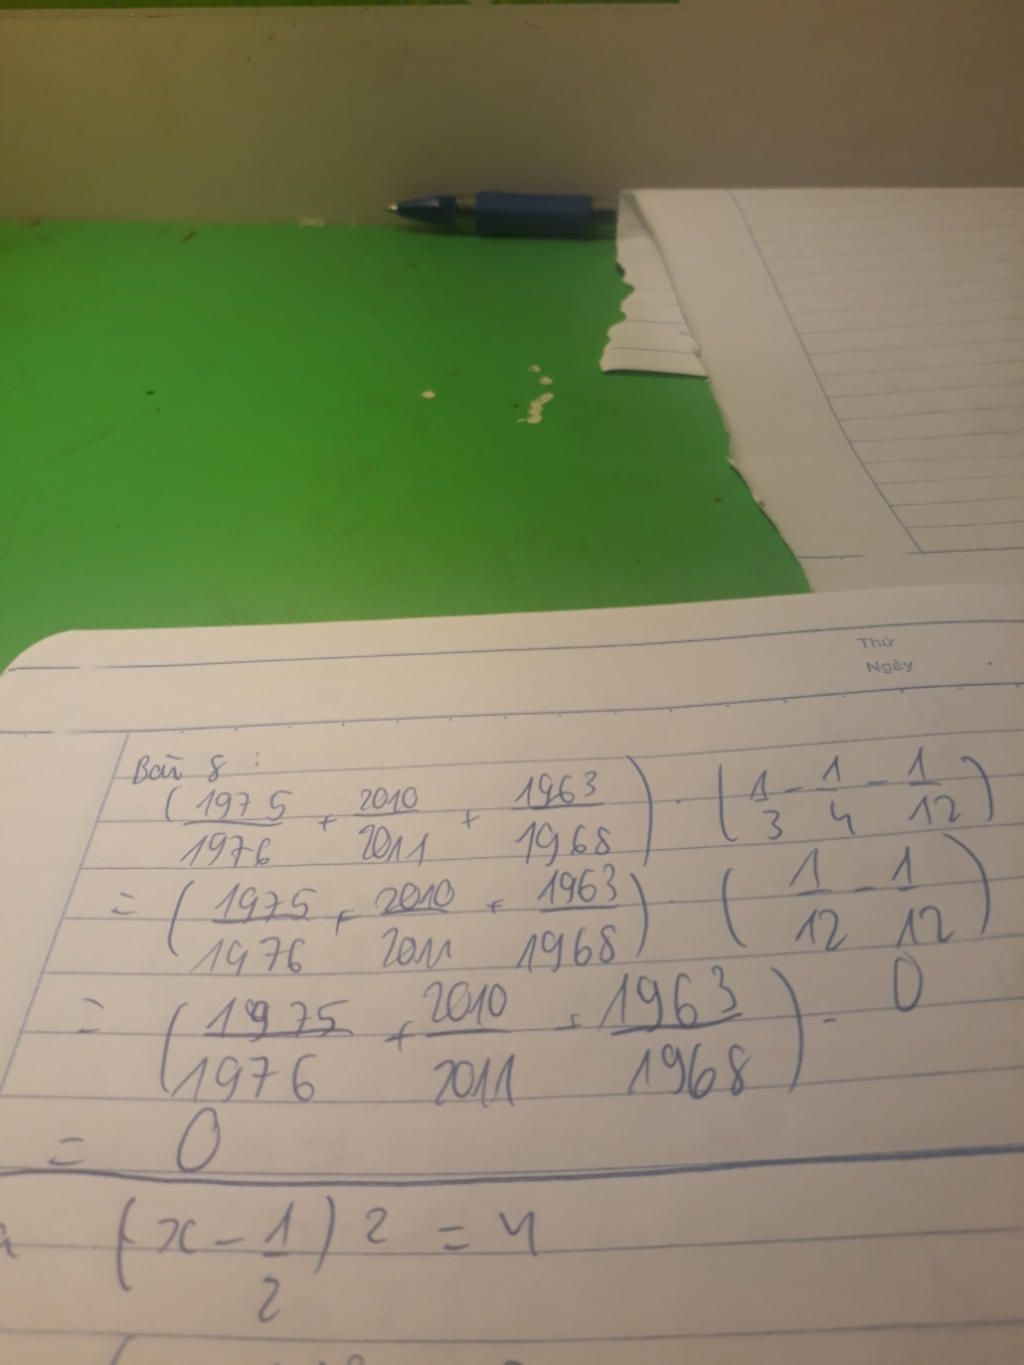 Thứ
Ngày
Bài 8 :
(1975/1976 + 2010/2011 + 1963/1968) . (1/3 - 1/4 - 1/12)
= (1975/1976 + 2010/2011 + 1963/1968) . (1/12 - 1/12)
= (1975/1976 + 2010/2011 + 1963/1968) . 0
= 0
(x - 1/2) 2 = 4